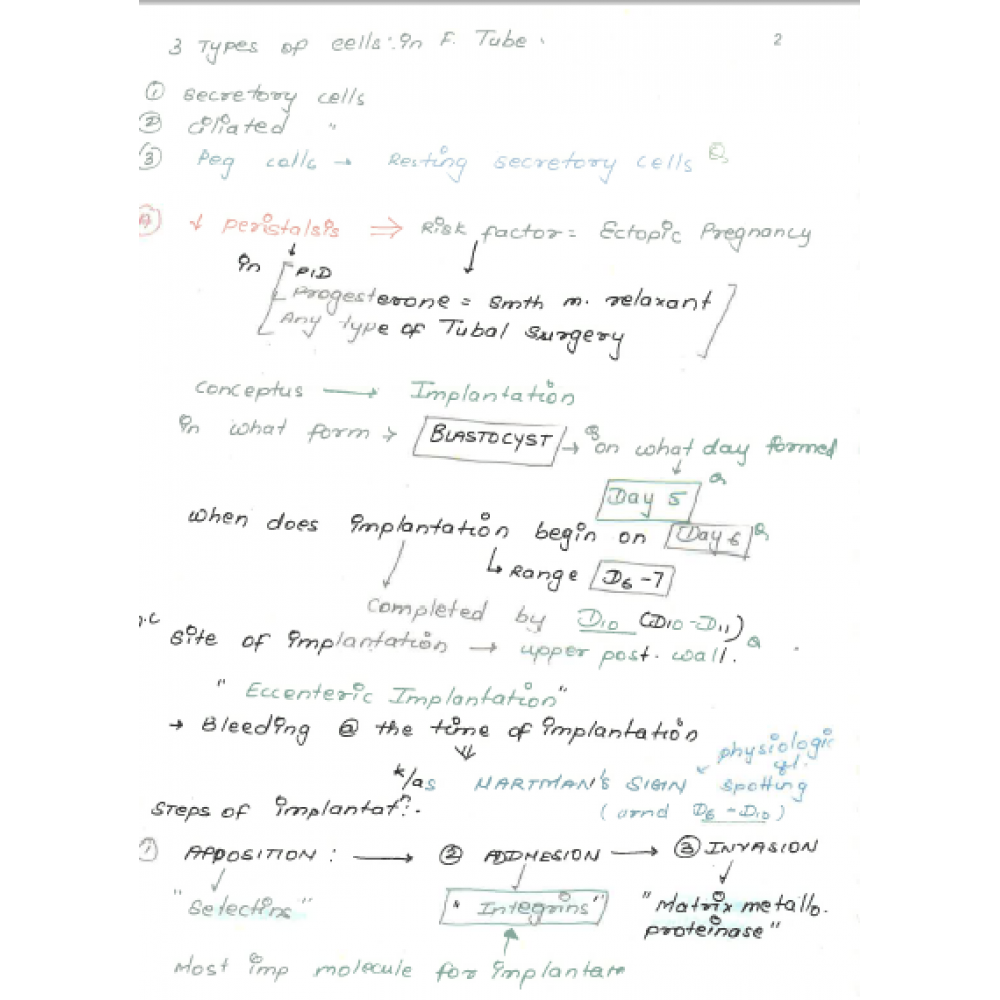 2
3 Types of cells in F. Tube.
① Secretory cells
② Ciliated "
③ Peg cells → Resting secretory cells Q
↓ Peristalsis ⇒ Risk factor = Ectopic Pregnancy
↓
in PID
Progesterone = Smth m. relaxant
Any type of Tubal Surgery
Conceptus → Implantation
in what form → BLASTOCYST → Q on what day formed
Day 5 Q
When does implantation begin on Day 6 Q
↳ Range D6-7
Completed by D10 (D10-D11)
Site of implantation → upper post. wall. Q
" Eccenteric Implantation"
→ Bleeding @ the time of implantation
k/as HARTMAN'S SIGN ← physiologic
spotting
(arnd D6-D10)
Steps of implantatⁿ.
① APPOSITION : → ② ADDHESION → ③ INVASION
"Selectins" "Integrins" "Matrix metallo.
proteinase"
Most imp molecule for implantatn